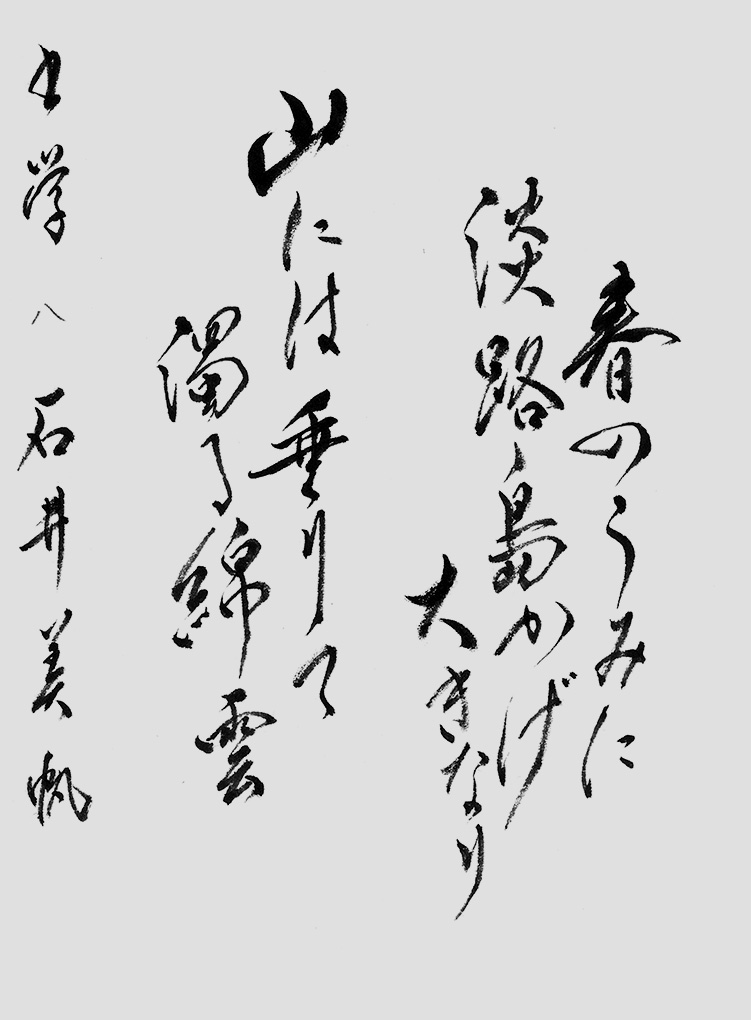 春のうみに
淡路島かげ
大きなり
山には垂りて
濁る綿雲
大学 八 石井美帆